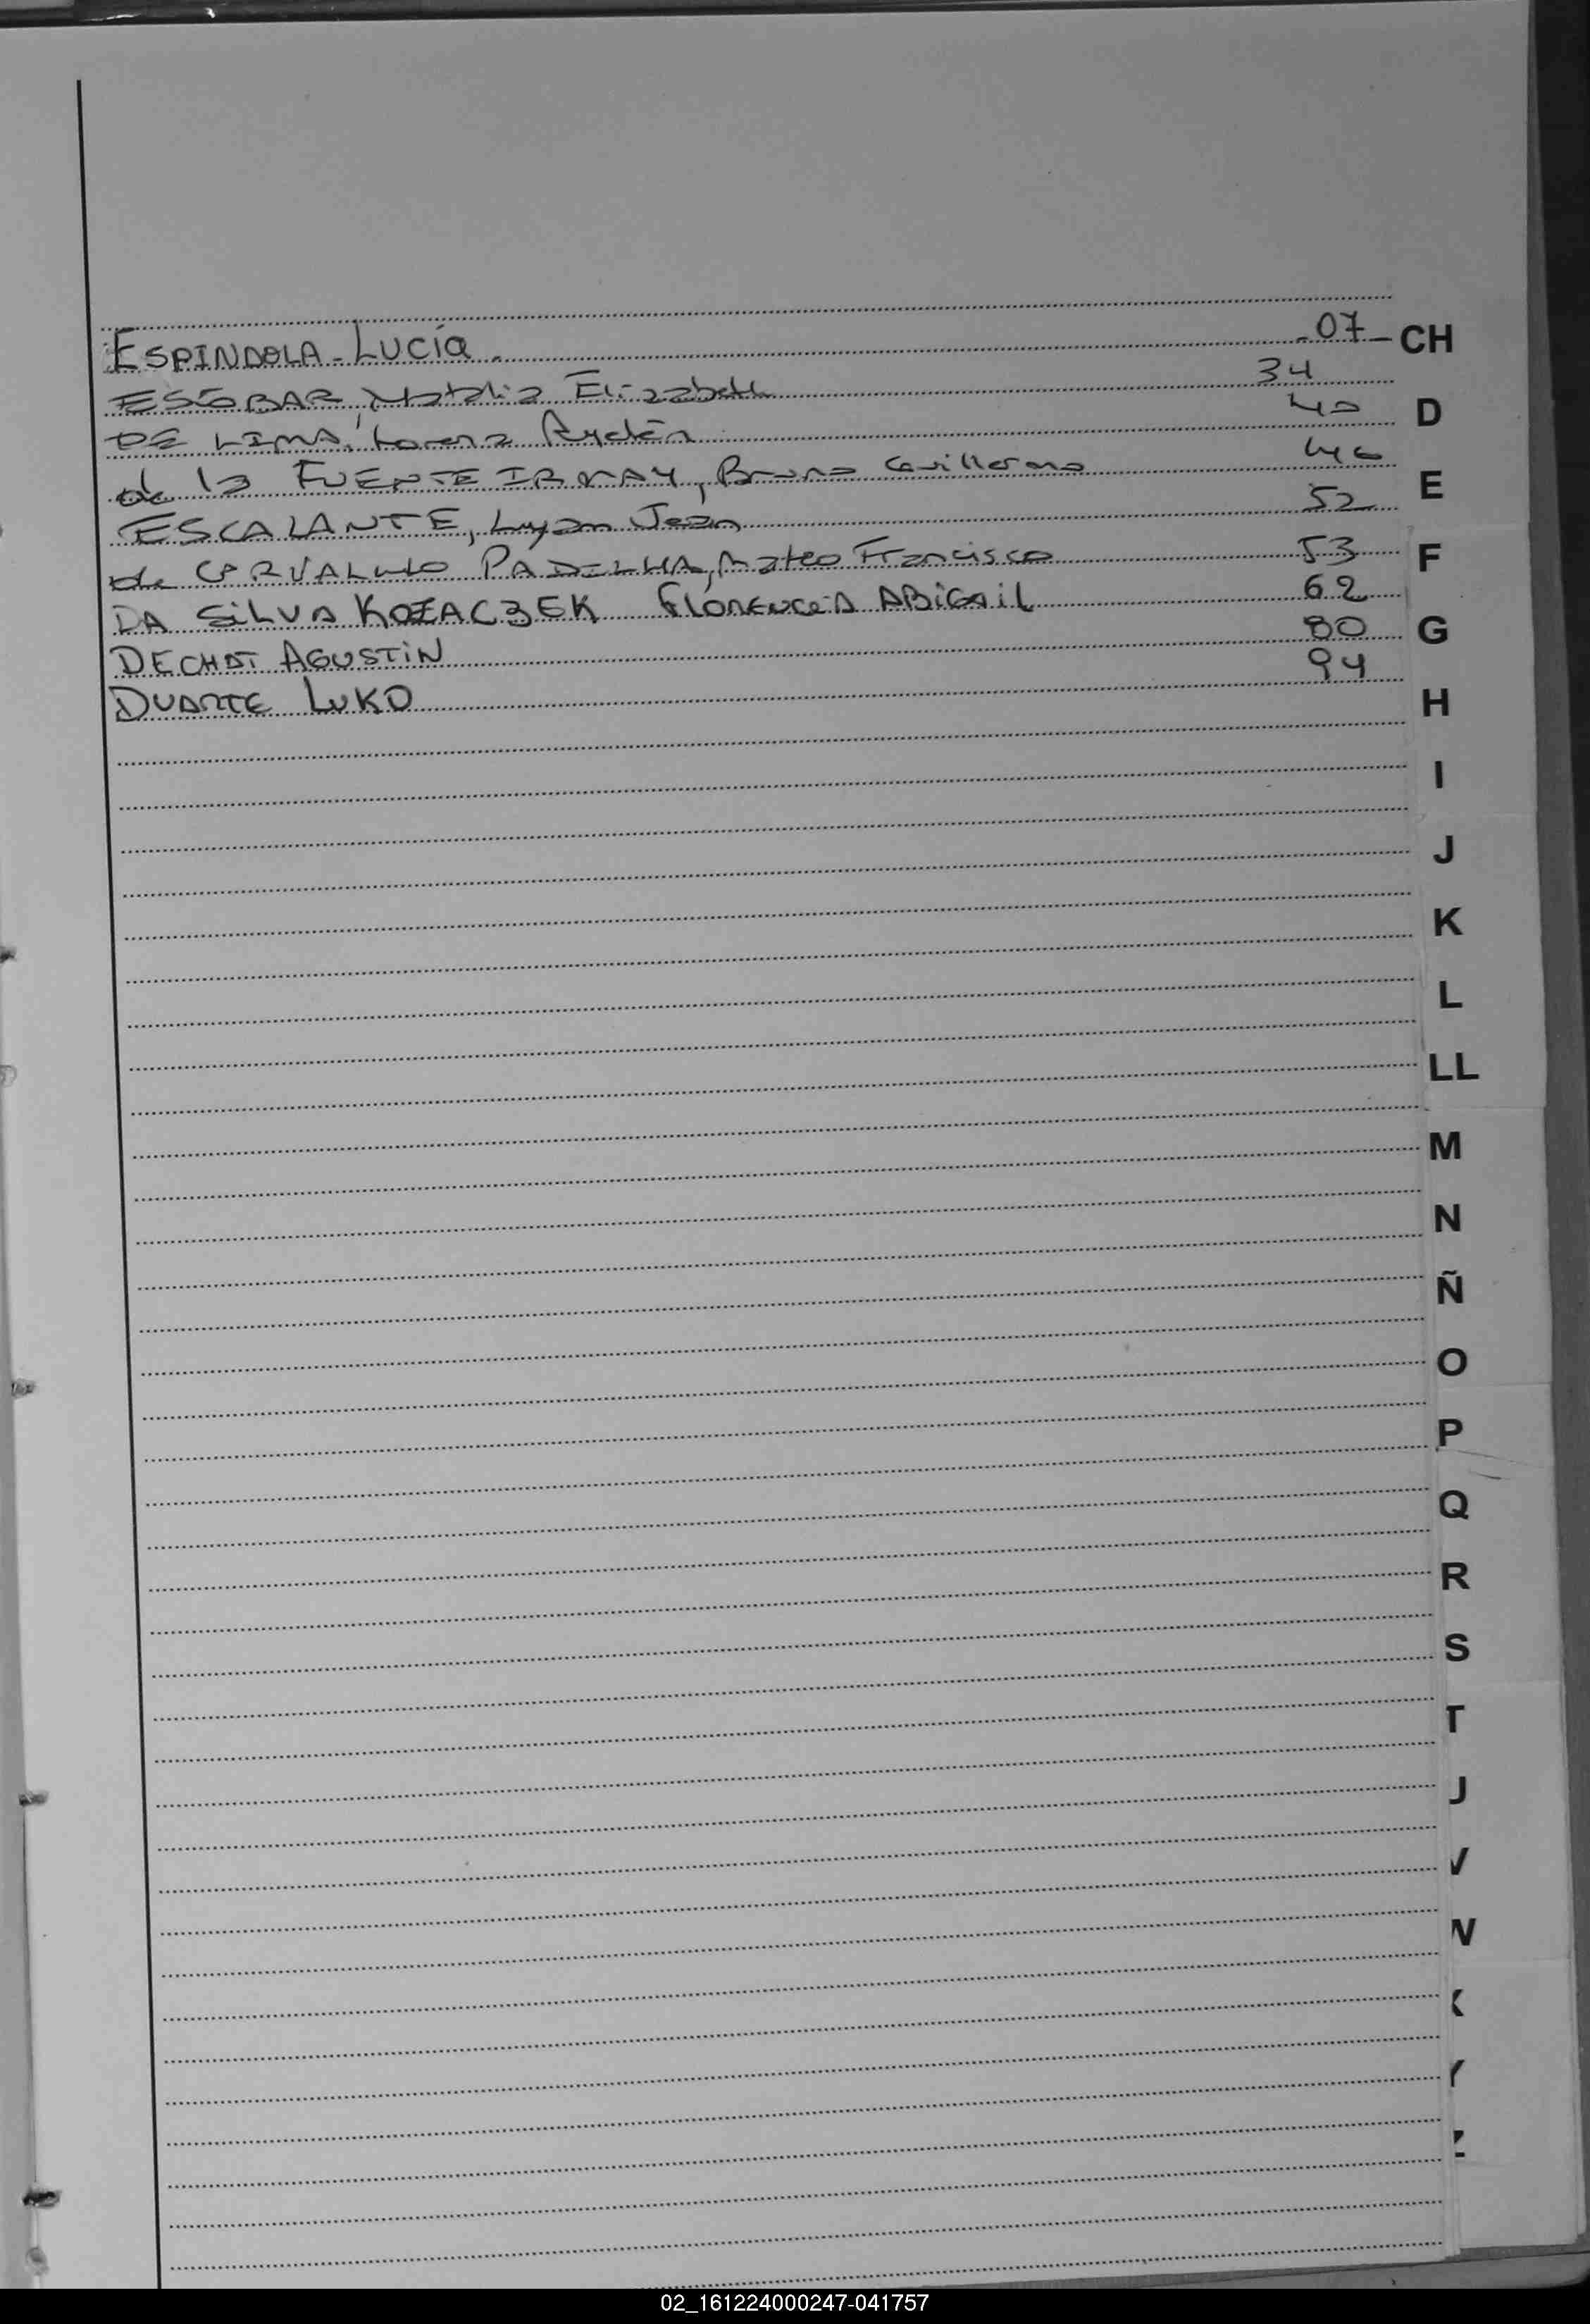 ESPINDOLA - LUCÍA. - 07 -
ESCOBAR, Natalia Elizabeth 34
DE LIMA, Lorenz 40
de la FUENTE Bruno Guillermo 46
ESCALANTE, Luyan Jean 52
de CARVALHO PADILHA, Mateo Francisco 53
DA SILVA KOZACZEK FLORENCIA ABIGAIL 62
DECHAT AGUSTIN 80
DUARTE LUKO 94
CH
D
E
F
G
H
I
J
K
L
LL
M
N
Ñ
O
P
Q
R
S
T
U
V
W
X
Y
Z
02_161224000247-041757